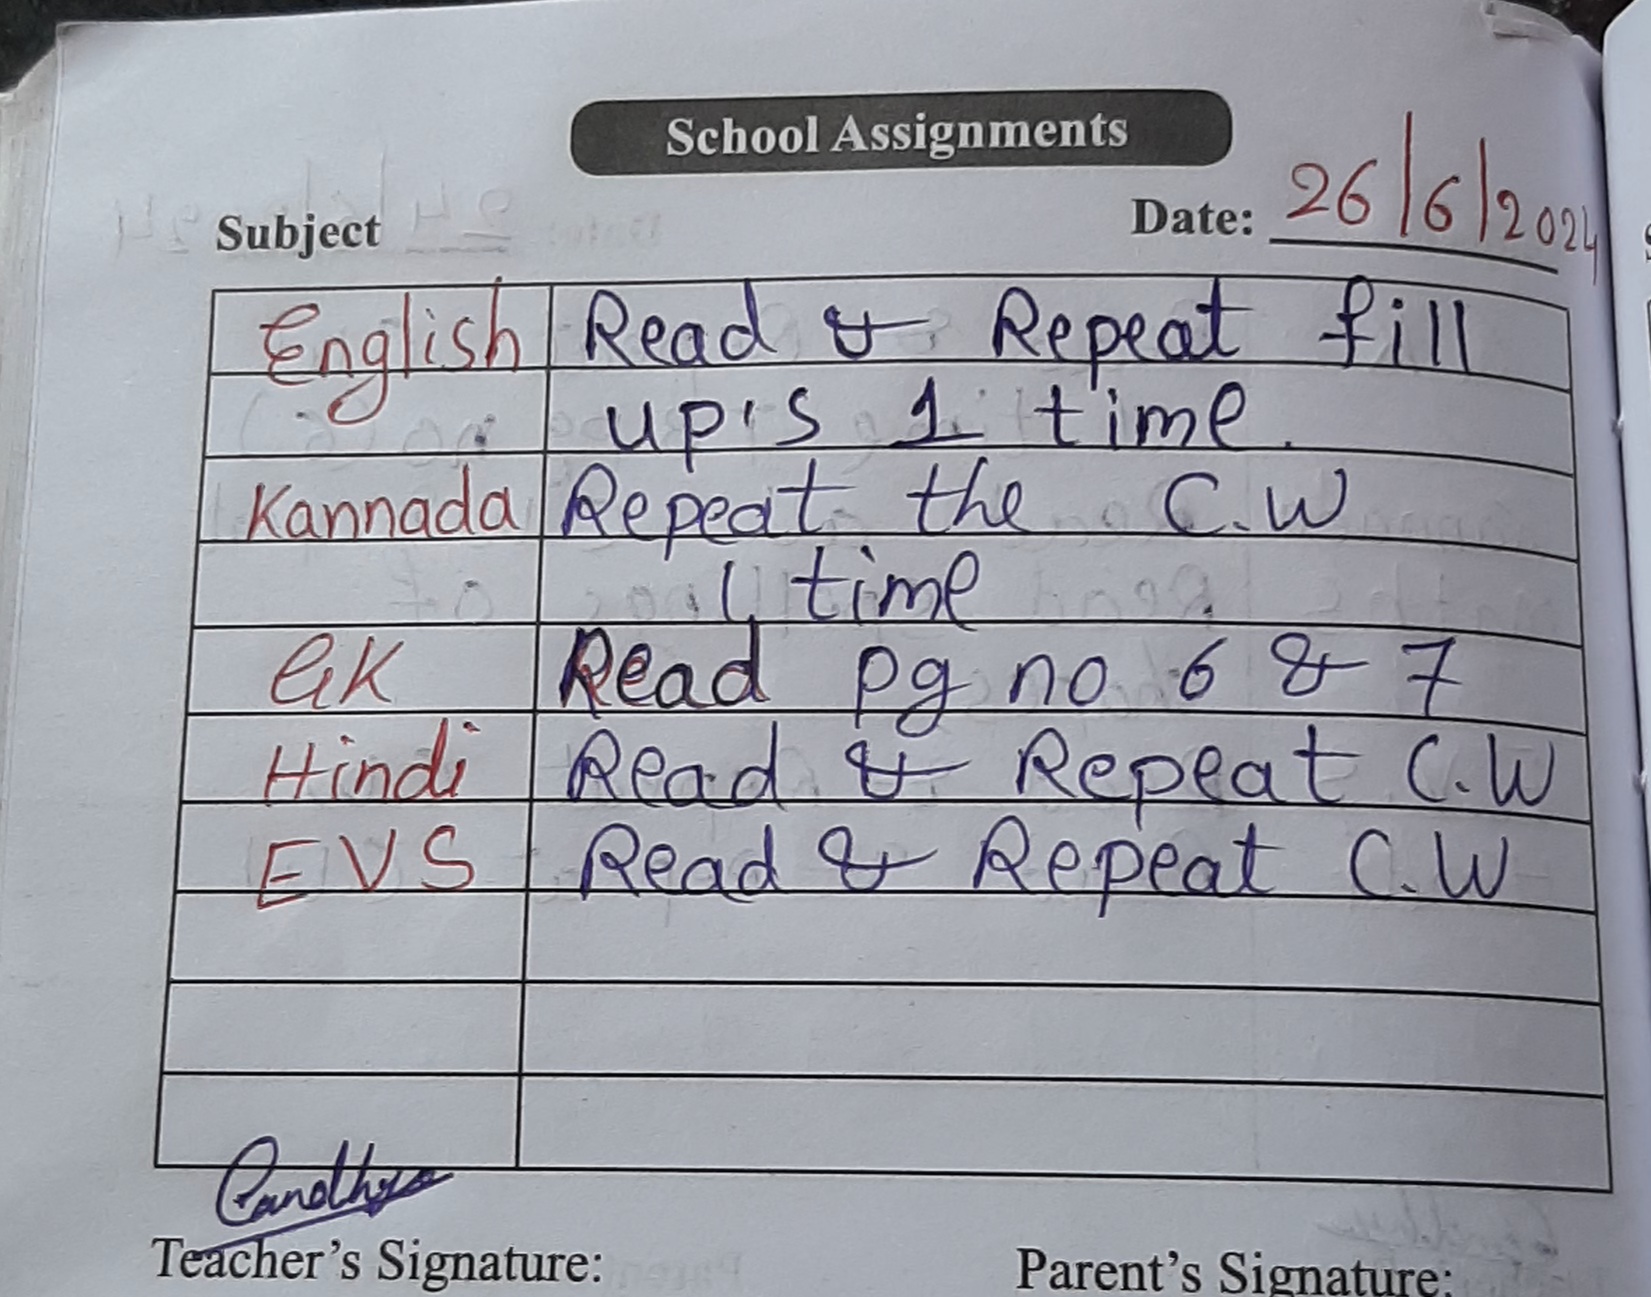 School Assignments
Subject Date: 26/6/2024
English Read & Repeat fill
up's 1 time.
Kannada Repeat the C.W
1 time.
GK Read pg no 6 & 7
Hindi Read & Repeat C.W
EVS Read & Repeat C.W
Teacher's Signature: Parent's Signature: